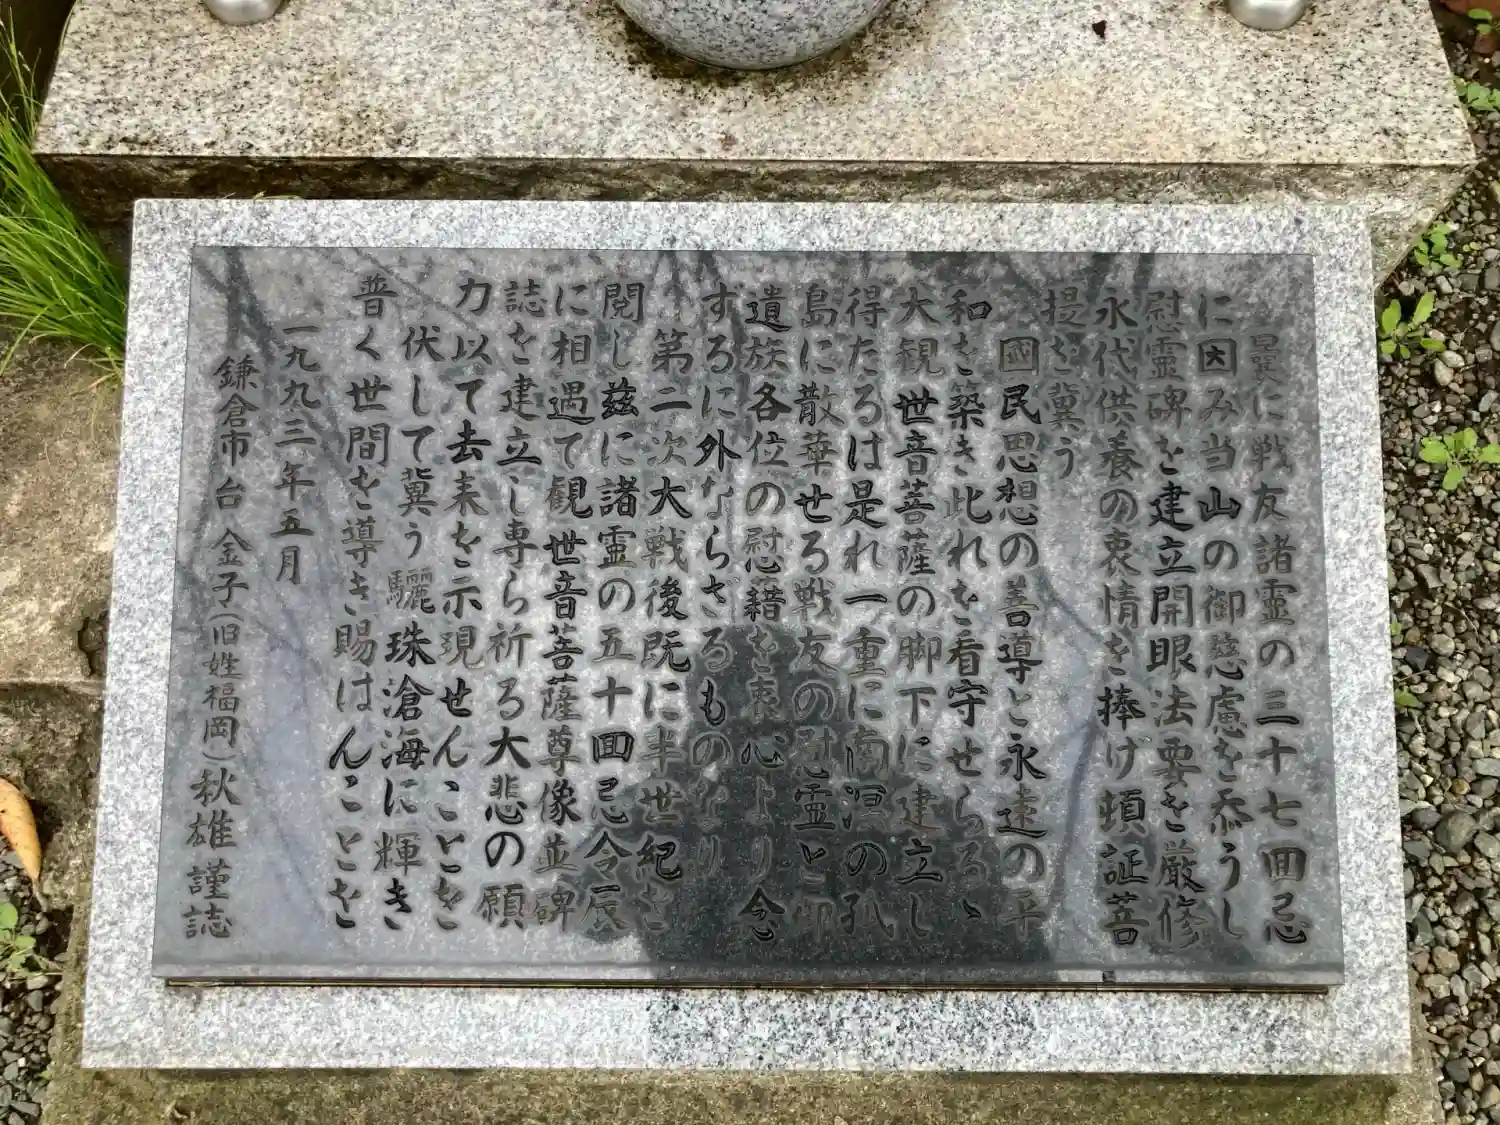 曩に戦友諸霊の三十七回忌
に因み当山の御慈慮を忝うし
慰霊碑を建立開眼法要を厳修
永代供養の衷情を捧げ頓証菩
提を冀う
国民思想の善導と永遠の平
和を築き此れを看守せらるゝ
大観世音菩薩の脚下に建立し
得たるは是れ一重に南溟の孤
島に散華せる戦友の慰霊と御
遺族各位の慰藉を衷心より念
ずるに外ならざるものなり
第二次大戦後既に半世紀を
閲し玆に諸霊の五十回忌令辰
に相遇て観世音菩薩尊像並碑
誌を建立し専ら祈る大悲の願
力以て去来を示現せんことを
伏して冀う驪珠滄海に輝き
普く世間を導き賜はんことを
一九九三年五月
鎌倉市台 金子(旧姓福岡)秋雄 謹誌